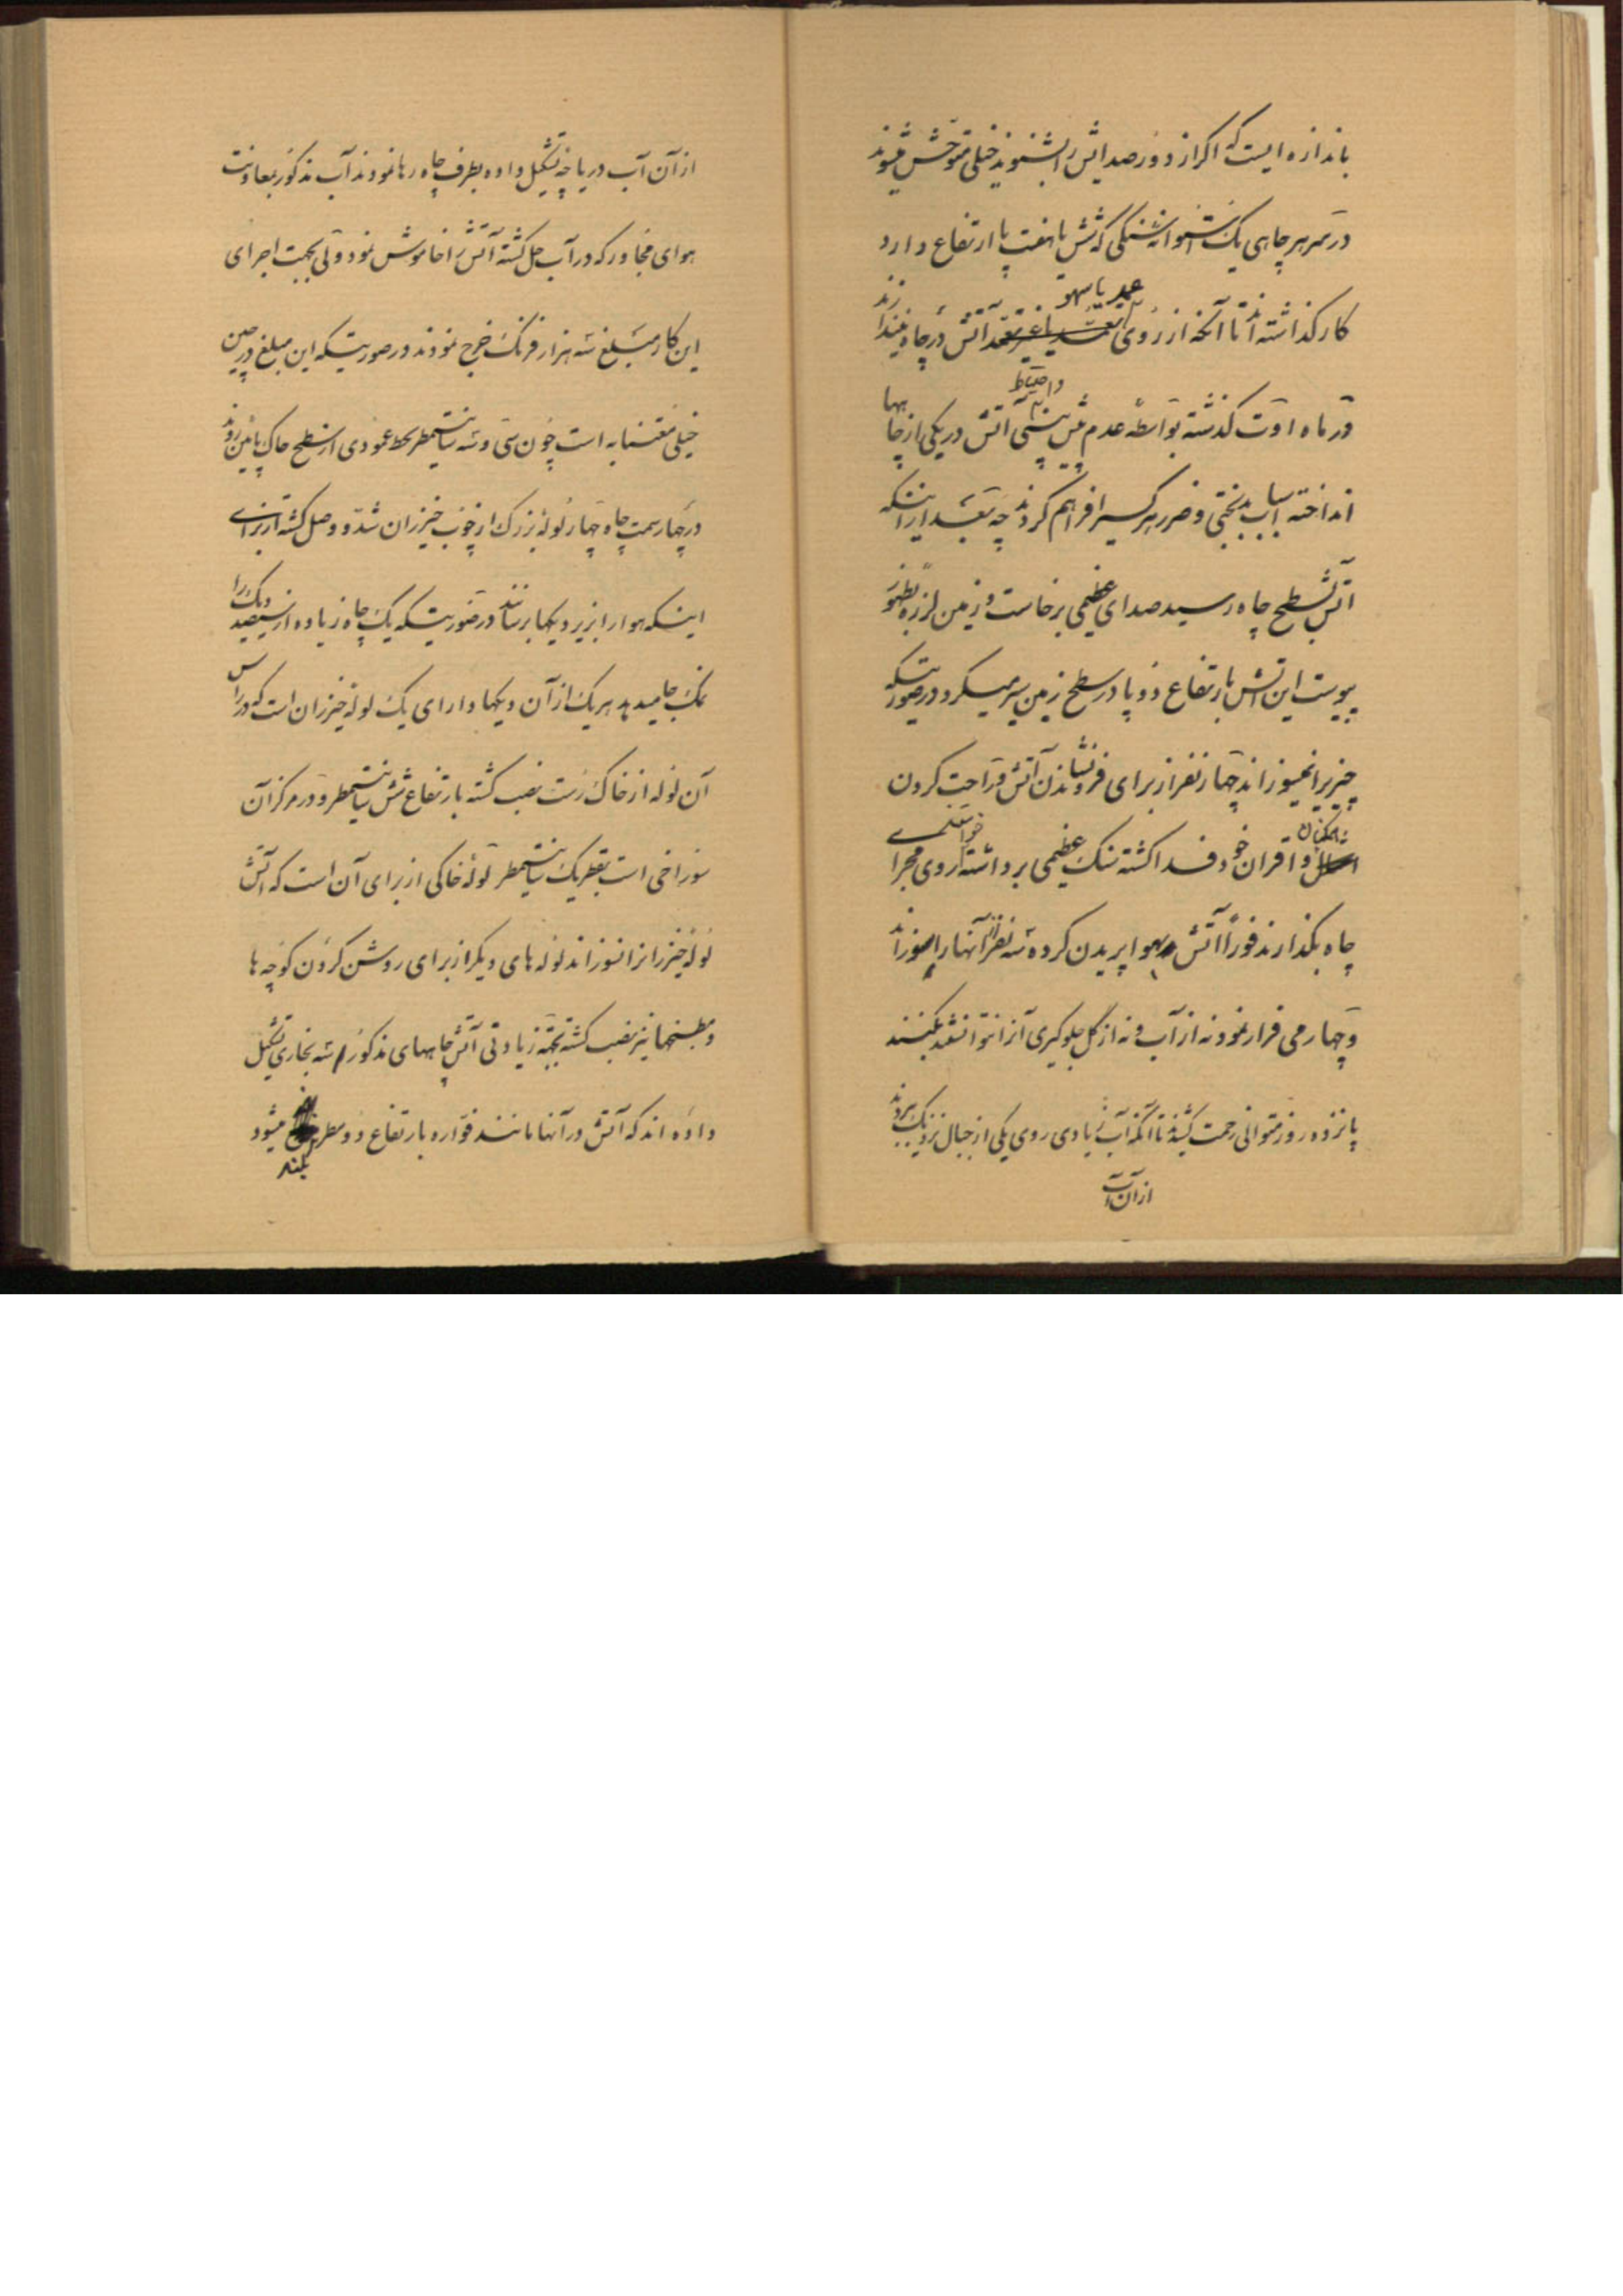 باندازه ایست که اگر از دور صدایش را بشنوید خیلی متوحش میشوید
در سر هر چاهی یک استوانه سنگی که شش یا هفت پا ارتفاع دارد
کار گذاشته‌اند تا آنکه از روی عمد یا سهو آتش در چاه نیندازند
در ماه اوت گذشته بواسطه عدم پیش بینی و احتیاط آتش در یکی از چاهها
انداخته اسباب بدبختی و ضرر هر کسیرا فراهم کردند چه بعد از اینکه
آتش بسطح چاه رسید صدای عظیمی برخاست و زمین لرزه بظهور
پیوست این آتش بارتفاع دو پا در سطح زمین سیر میکرد در صورتیکه
چیزیرا نمیسوزاند چهار نفر از برای فرو نشاندن آتش و راحت کردن
همگنان و اقران خود فدا گشته سنگ عظیمی برداشته خواستند روی مجرای
چاه بگذارند فوراً آتش بهوا پریدن کرده سه نفر از آنها را بسوزاند
و چهارمی فرار نمود نه از آب و نه از گل جلوگیری آنرا نتوانستند بکنند
پانزده روز متوالی زحمت کشیدند تا آنکه آب زیادی روی یکی از جبال نزدیک ببردند
از آن آب
از آن آب دریاچه تشکیل داده بطرف چاه رها نمودند آب مذکور بمعاونت
هوای مجاور که در آب حل گشته آتش را خاموش نمود ولی بجهت اجرای
این کار مبلغ سه هزار فرنگ خرج نمودند در صورتیکه این مبلغ در چین
خیلی معتنابه است چون سی و سه سانتیمتر بخط عمودی از سطح خاک پائین روند
در چهار سمت چاه چهار لوله بزرگ از چوب خیزران شده و وصل گشته از برای
اینکه هوا را بزیر دیگها برسانند در صورتیکه یک چاه زیاده از سیصد دیگ را
نمک جا میدهد هر یک از آن دیگها دارای یک لوله خیزران است که در رأس
آن لوله از خاک رست نصب گشته بارتفاع شش سانتیمتر و در مرکز آن
سوراخی است بقطر یک سانتیمتر لوله خاکی از برای آن است که آتش
لوله خیزرانرا نسوزاند لوله های دیگر از برای روشن کردن کوچه ها
و مطبخها نیز نصب گشته بجهة زیادتی آتش چاههای مذکور سه بخاری تشکیل
داده اند که آتش در آنها مانند فواره بارتفاع دو مطر بلند میشود